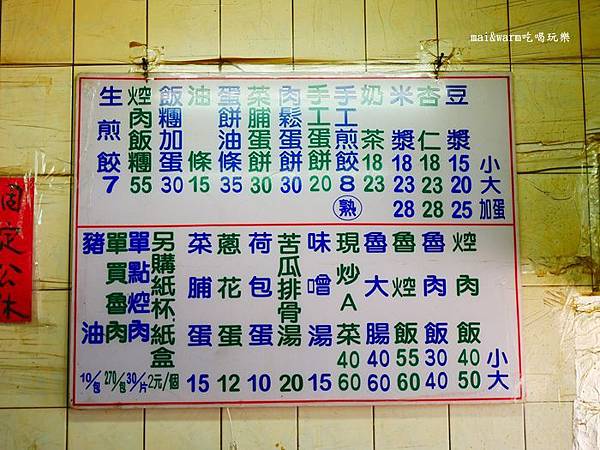 mai&warm吃喝玩樂
小 大 加蛋
豆漿 15 20 25
杏仁 18 23 28
米漿 18 23 28
奶茶 18 23
手工煎餃 8 熟
手工蛋餅 20
肉鬆蛋餅 30
菜脯蛋餅 30
蛋餅油條 35
油條 15
飯糰加蛋 30
焢肉飯糰 55
生煎餃 7
小 大
焢肉飯 40 50
魯肉飯 30 40
魯焢飯 55 60
魯大腸 40 60
現炒A菜 40 60
味噌湯 15
苦瓜排骨湯 20
荷包蛋 10
蔥花蛋 12
菜脯蛋 15
另購紙杯紙盒 2元/個
單點焢肉 30/片
單買魯肉 270/包
豬油 10/包
固定公休